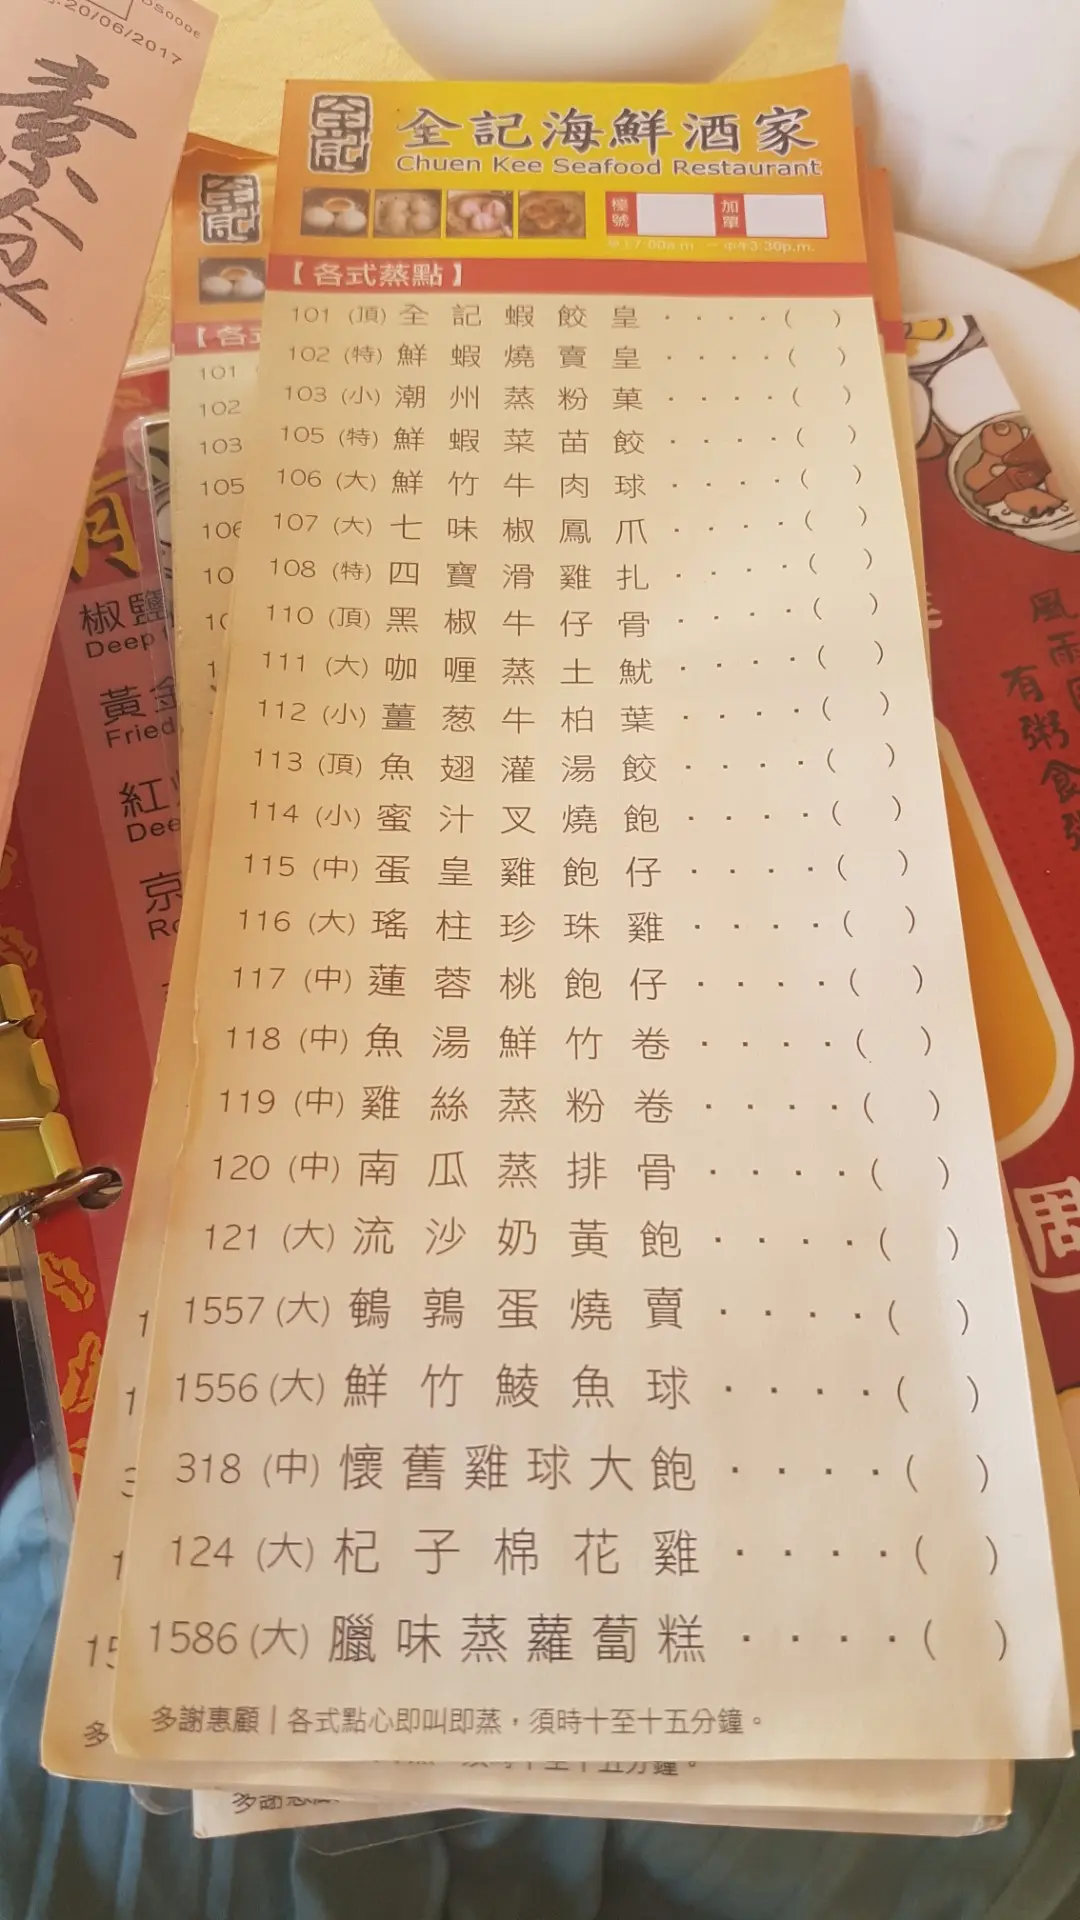 全記
全記海鮮酒家
Chuen Kee Seafood Restaurant
檯號
加單
早上7:00a.m. 一 中午3:30p.m.
【各式蒸點】
101 (頂) 全記蝦餃皇 · · · · ( )
102 (特) 鮮蝦燒賣皇 · · · · ( )
103 (小) 潮州蒸粉菓 · · · · ( )
105 (特) 鮮蝦菜苗餃 · · · · ( )
106 (大) 鮮竹牛肉球 · · · · ( )
107 (大) 七味椒鳳爪 · · · · ( )
108 (特) 四寶滑雞扎 · · · · ( )
110 (頂) 黑椒牛仔骨 · · · · ( )
111 (大) 咖喱蒸土魷 · · · · ( )
112 (小) 薑葱牛柏葉 · · · · ( )
113 (頂) 魚翅灌湯餃 · · · · ( )
114 (小) 蜜汁叉燒飽 · · · · ( )
115 (中) 蛋皇雞飽仔 · · · · ( )
116 (大) 瑤柱珍珠雞 · · · · ( )
117 (中) 蓮蓉桃飽仔 · · · · ( )
118 (中) 魚湯鮮竹卷 · · · · ( )
119 (中) 雞絲蒸粉卷 · · · · ( )
120 (中) 南瓜蒸排骨 · · · · ( )
121 (大) 流沙奶黃飽 · · · · ( )
1557 (大) 鵪鶉蛋燒賣 · · · · ( )
1556 (大) 鮮竹鯪魚球 · · · · ( )
318 (中) 懷舊雞球大飽 · · · · ( )
124 (大) 杞子棉花雞 · · · · ( )
1586 (大) 臘味蒸蘿蔔糕 · · · · ( )
多謝惠顧｜各式點心即叫即蒸，須時十至十五分鐘。
20/06/2017
DS0006
全記
【各式
101
102
103
105
椒鹽
Deep
黃金
Fried
紅
Dee
京
風雨
有粥食
周
多
十至十五分鐘。
多謝